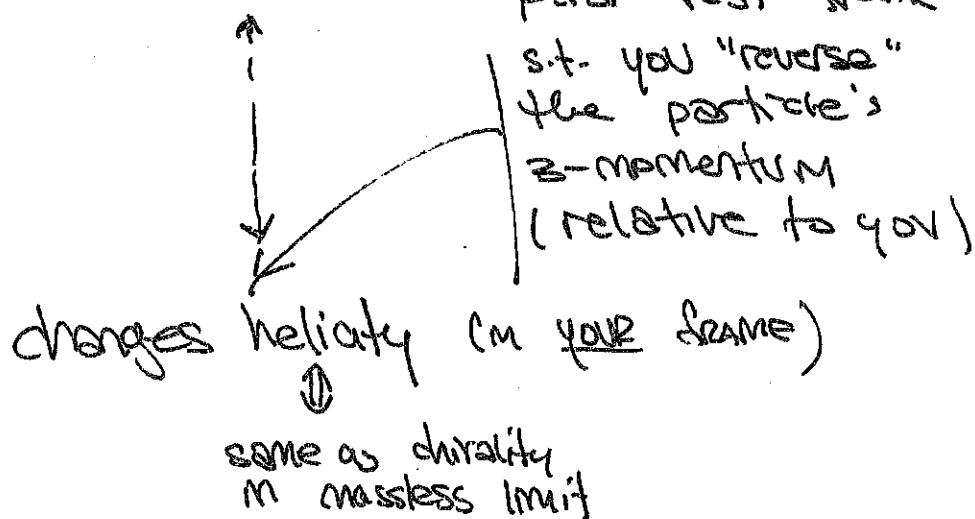 s.t. you "reverse"
the particle's
z-momentum
(relative to you)
changes helicity (in YOUR FRAME)
same as chirality
in massless limit